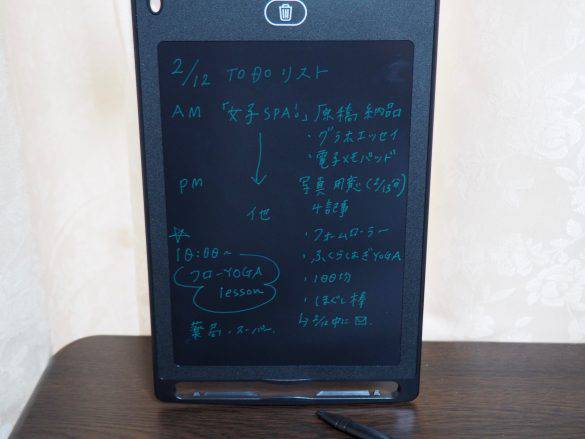 2/12 TODOリスト
AM 「女子SPA!」原稿納品
・グラホエッセイ
・電子メモパッド
PM 写真用意(2/13分)
4記事
他
・フォームローラー
☆
18:00~
・ふくらはぎYOGA
フローYOGA
lesson
・100均
・ほぐし棒
薬局・スーパー
↳2/12中に✉.